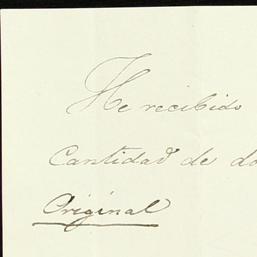 He recibido
Cantidad de do
Original